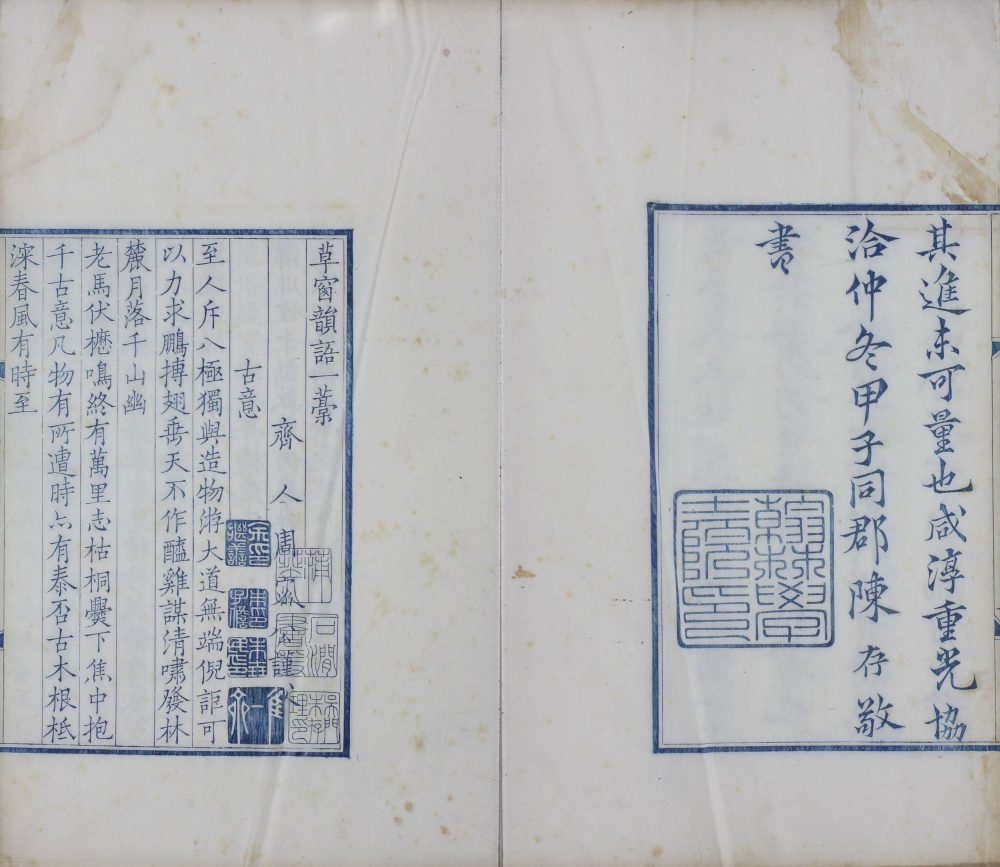 其進未可量也咸淳重光協
洽仲冬甲子同郡陳存敬
書
翰林學士院印
草窗韻語一藁
齊人周密公謹父
古意
至人斥八極獨與造物游大道無端倪詎可
以力求鵬摶翅垂天不作醯雞謀清嘯發林
麓月落千山幽
老馬伏櫪鳴終有萬里志枯桐爨下焦中抱
千古意凡物有所遭時亦有泰否古木根柢
深春風有時至